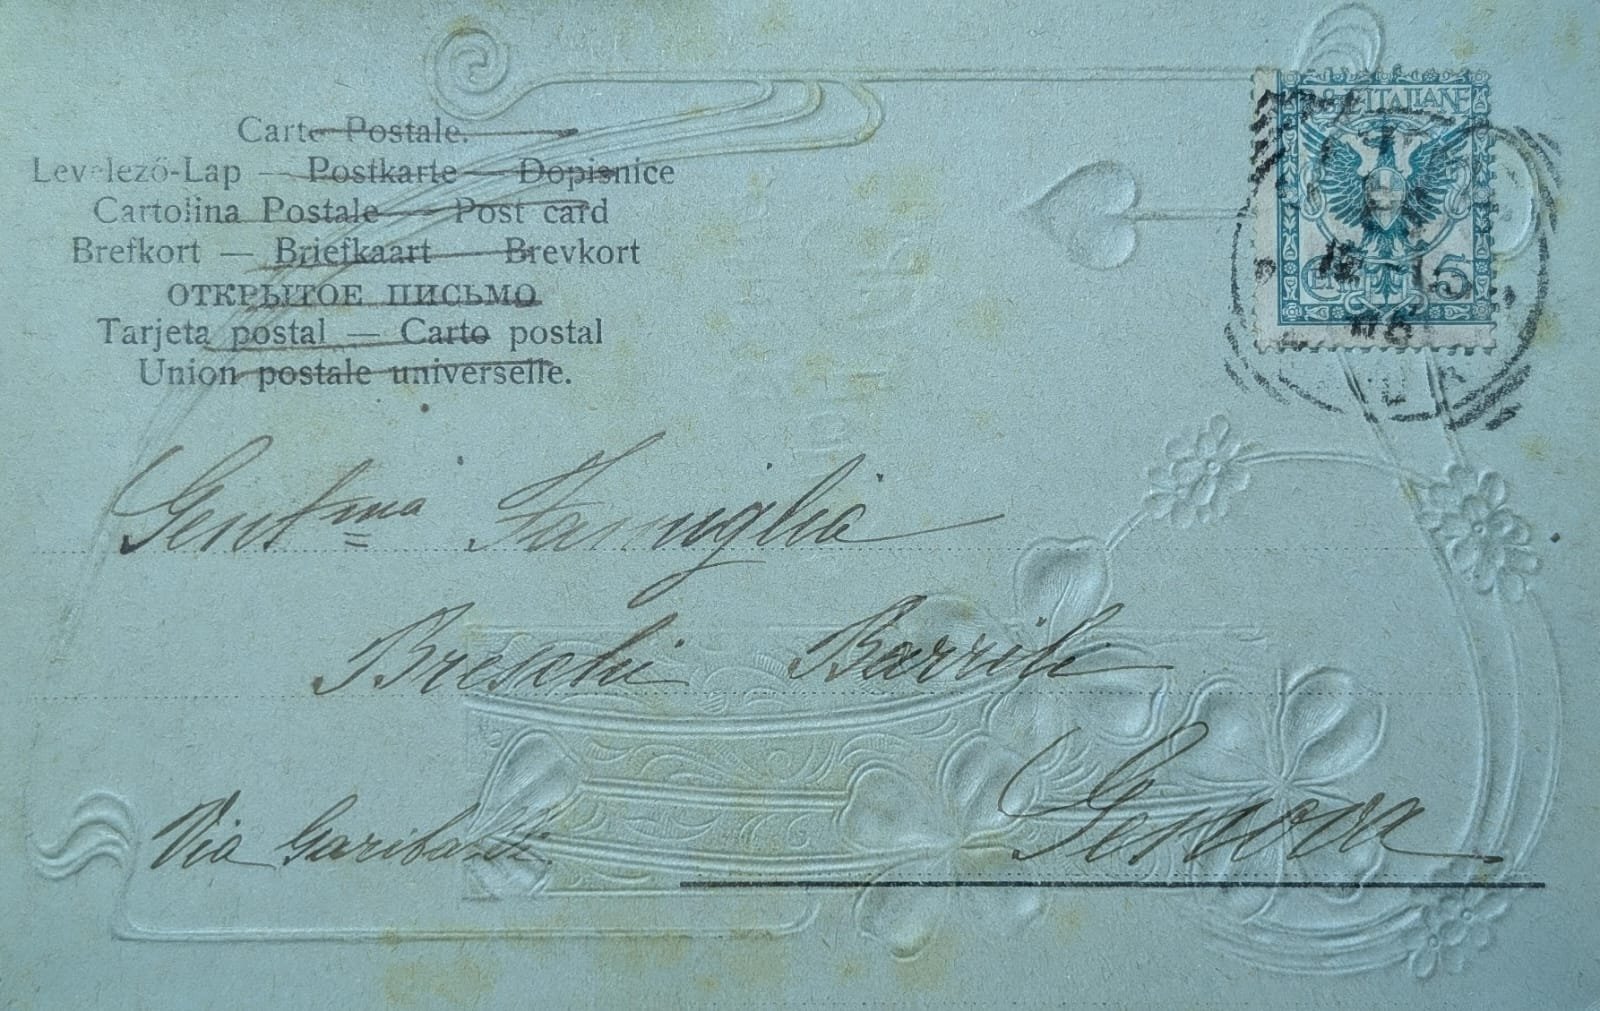 Carte Postale.
Levelező-Lap — Postkarte — Dopisnice
Cartolina Postale — Post card
Brefkort — Briefkaart — Brevkort
ОТКРЫТОЕ ПИСЬМО
Tarjeta postal — Carto postal
Union postale universelle.
ITALIANE
CENT 5
Gent.ma Famiglia
Breschi Barrili
Via Garibaldi.
Genova